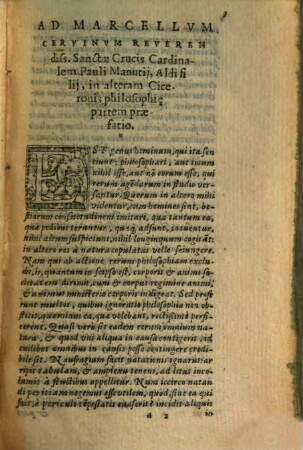 AD MARCELLVM
CERVINVM REVEREN
diss. Sanctæ Crucis Cardina-
lem Pauli Manutij, Aldi fi
lij, in alteram Cice
ronis philosophię
partem præ-
fatio.
EST genus hominum, qui ita sen
tiunt: philosophari, aut totum
nihil esse, aut nō eorum esse, qui
rerum agēdarum in studio ver-
santur. Quorum in altero mihi
videntur, cum homines sint, be-
stiarum consuetudinem imitari, quæ tantum ea,
quæ pedibus teruntur, quęq́; adsunt, intuentur,
nihil altum suspiciunt, nihil longinquum cogitāt:
in altero res à natura copulatas velle seiungere.
Nam qui ab actione rerum philosophiam exclu-
dit, is, quantum in seipso est, corporis & animi so-
cietatem dirimit, cum & corpus regimine animi,
& animus ministerio corporis indigeat. Sed profe
runt multos, quibus ignoratio philosophiæ non ob-
stitit, quominus ea, quæ volebant, rectissimè per-
ficerent. Quasi verò sit eadem omnium omnium na-
tura, & quod vni aliqua in causa contigerit, id
similibus omnibus in causis posse contingere credi-
bile sit. Naufragium facit natationis ignarus: ar-
ripit tabulam, & amplexu tenet, ad litus incolu-
mis à fluctibus appellitur. Num iccirco natan
di peritiam negemus esse vtilem, quòd, sine ea qui
sit, è periculi tēpestatis euaserit? incidit aliquis
a 2 in